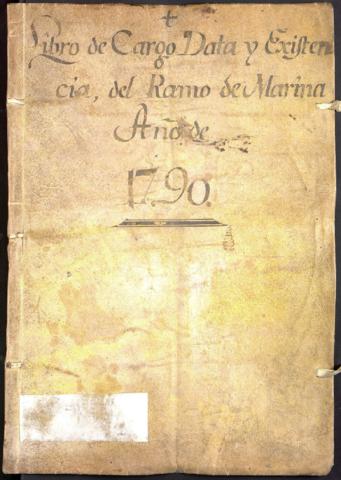 Libro de Cargo Data y Existen
cia, del Ramo de Marina
Año de
1790.